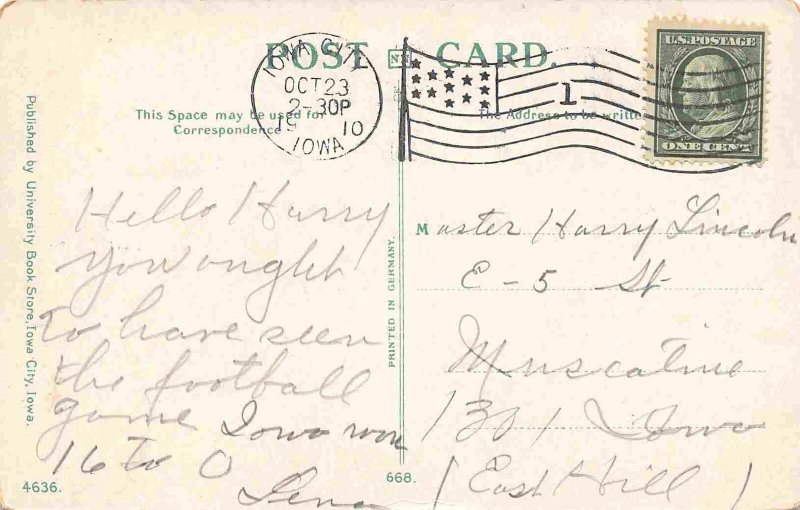 POST CARD.
IOWA CITY
OCT 23
2-30P
1910
IOWA
1
U.S. POSTAGE
ONE CENT
This Space may be used for
Correspondence
The Address to be written
Hello Harry
you ought
to have seen
the football
game Iowa won
16 to 0
Master Harry Lincoln
E-5 St
Muscatine
1301 Iowa
(East Hill)
PRINTED IN GERMANY.
Published by University Book Store, Iowa City, Iowa.
4636.
668.